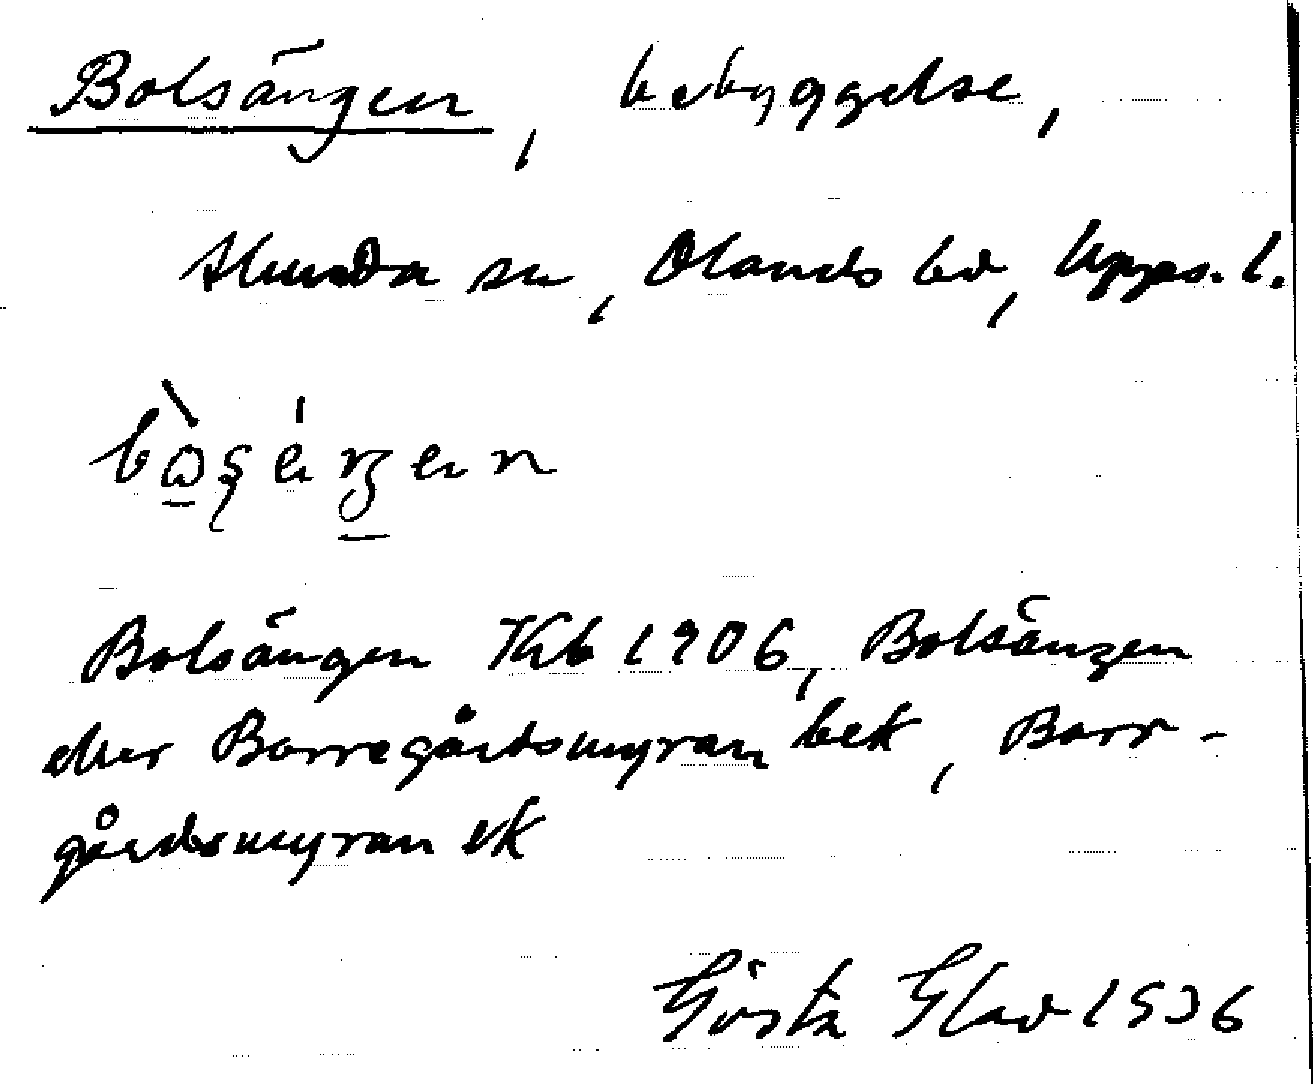 Bolsängen, bebyggelse,
Alunda sn, Olands hd, Upps. l.
Bolsängen Kb 1906, Bolsängen
eller Borregårdsmyran bek, Borr-
gårdsmyran ek
Gösta Glad 1936